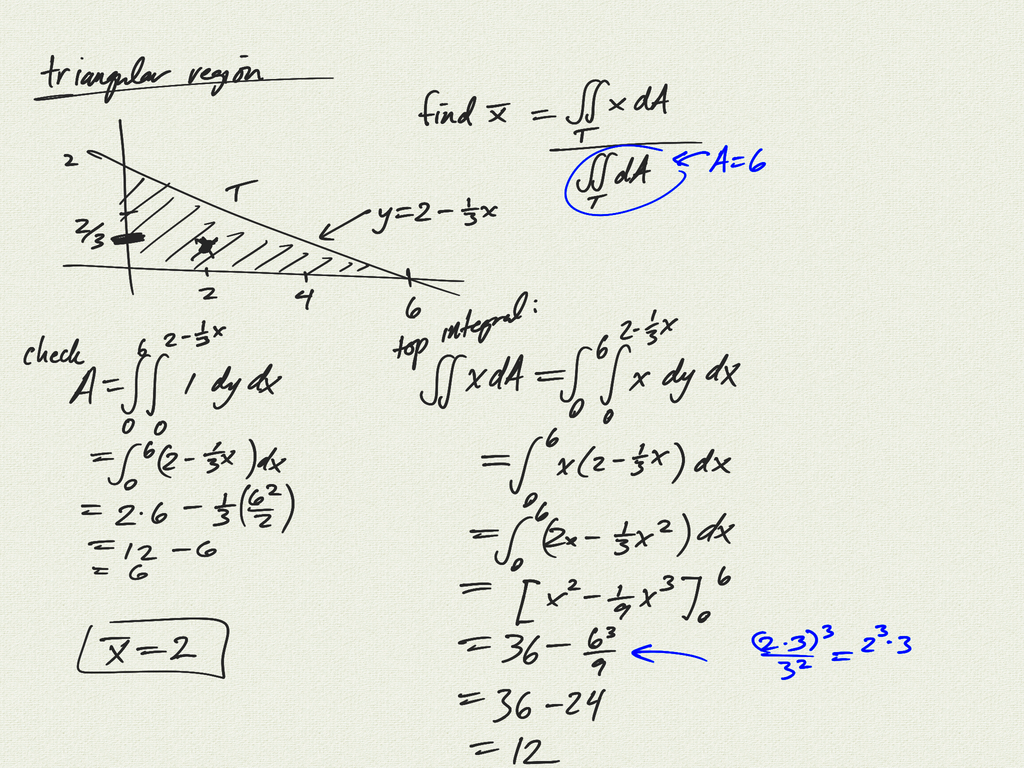 triangular region
find x̄ = ∬_T x dA / ∬_T dA ← A=6
2
T
y = 2 - 1/3 x
2/3
2 4 6
check
A = ∫_0^6 ∫_0^{2-1/3x} 1 dy dx
= ∫_0^6 (2 - 1/3x) dx
= 2·6 - 1/3 (6²/2)
= 12 - 6
= 6
x̄ = 2
top integral:
∬ x dA = ∫_0^6 ∫_0^{2-1/3x} x dy dx
= ∫_0^6 x(2 - 1/3x) dx
= ∫_0^6 (2x - 1/3x²) dx
= [x² - 1/9x³]_0^6
= 36 - 6³/9 ← (2·3)³/3² = 2³·3
= 36 - 24
= 12